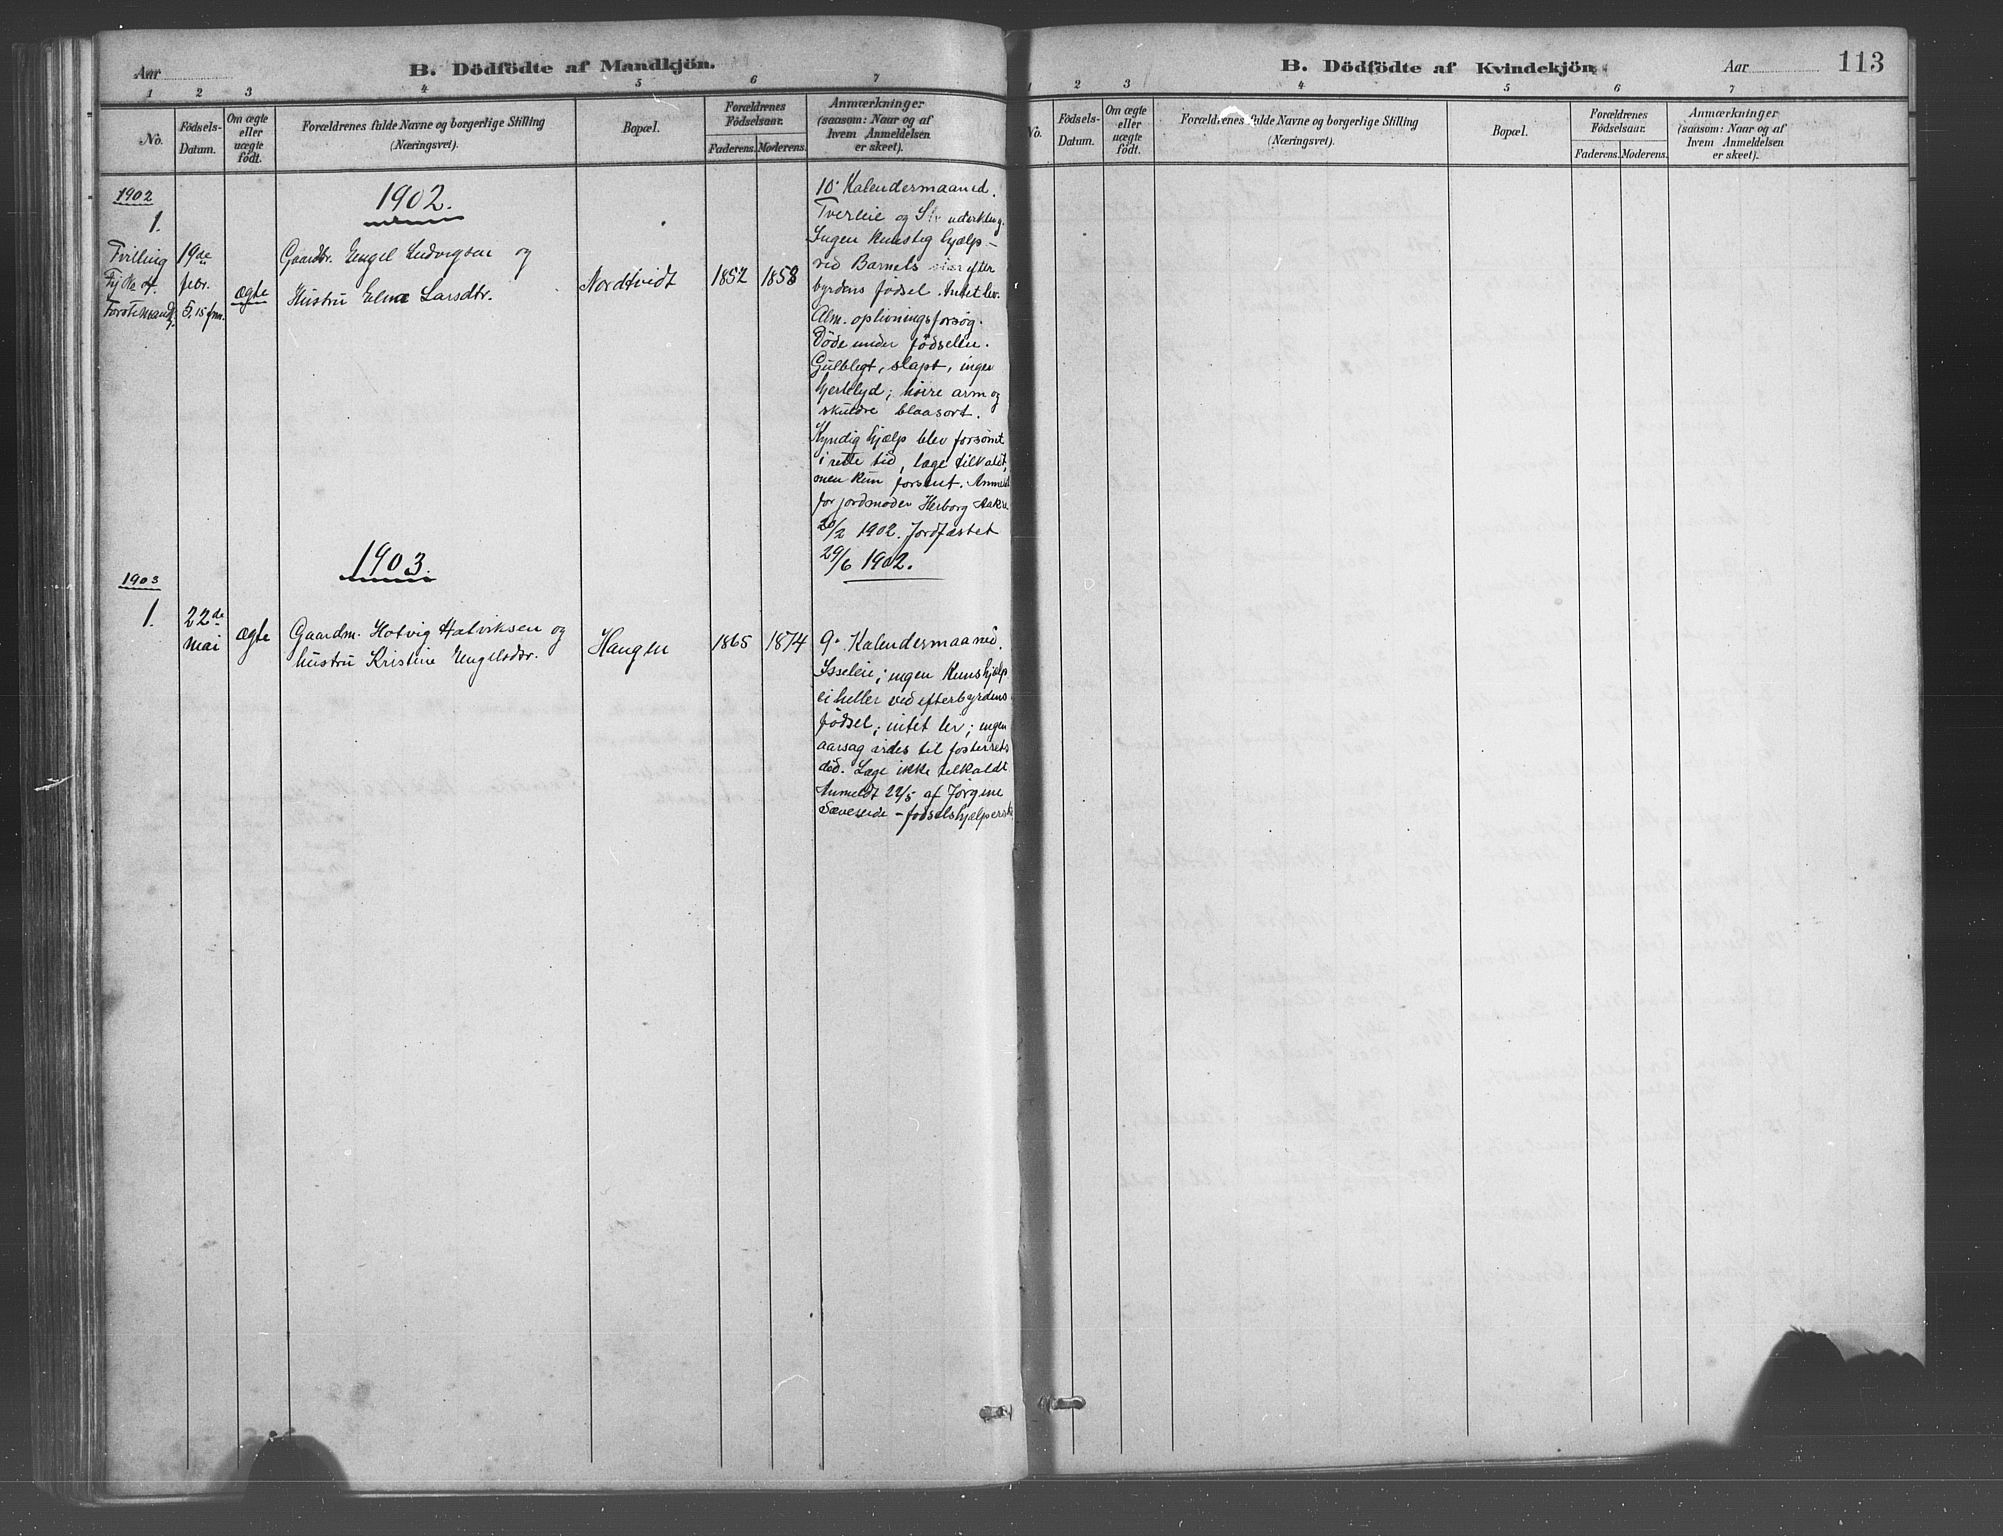 Aar
B. Dödfödte af Mandkjön.
1 2 3 4 5 6 7
No.
Födsels-
Datum.
Om ægte
eller
uægte
födt.
Forældrenes fulde Navne og borgerlige Stilling
(Næringsvei).
Bopæl.
Forældrenes
Födselsaar.
Faderens. Moderens.
Anmærkninger
(saasom: Naar og af
hvem Anmeldelsen
er skeet).
1902
1902.
1.
Tvilling
19de
febr.
5,15 fm.
ægte
Gaardbr. Engel Ludvigsen og
Hustru Elna Larsdtr.
Nordtvidt
1852
1858
10. Kalendermaaned.
Tverleie og
Ingen kunstig hjælp –
ved Barnets efter
byrdens födsel. Intet lev.
Alm. oplivningsforsøg.
Döde under födselen.
Gulblegt, slapt, ingen
hjertelyd; höire arm og
skuldre blaasort.
Kyndig hjælp blev forsømt
i rette tid, læge tilkaldt,
men kun forsent. Anmeldt
for jordmoder Herborg Aakre
20/2 1902. Jordfæstet
29/6 1902.
1903
1903.
1.
22de
mai
ægte
Gaardm. Hotvig Halviksen og
hustru Kristine Engelsdtr.
Haugen
1865
1874
9. Kalendermaaned.
Isseleie; ingen Kunsthjælp
ei heller ved efterbyrdens
födsel; intet lev; ingen
aarsag vides til fosterets
död. Læge ikke tilkaldt
Anmeldt 22/5 af Jørgine
Sæveseide – födselshjælperske
B. Dödfödte af Kvindekjön.
Aar
113
1 2 3 4 5 6 7
No.
Födsels-
Datum.
Om ægte
eller
uægte
födt.
Forældrenes fulde Navne og borgerlige Stilling
(Næringsvei).
Bopæl.
Forældrenes
Födselsaar.
Faderens. Moderens.
Anmærkninger
(saasom: Naar og af
hvem Anmeldelsen
er skeet).